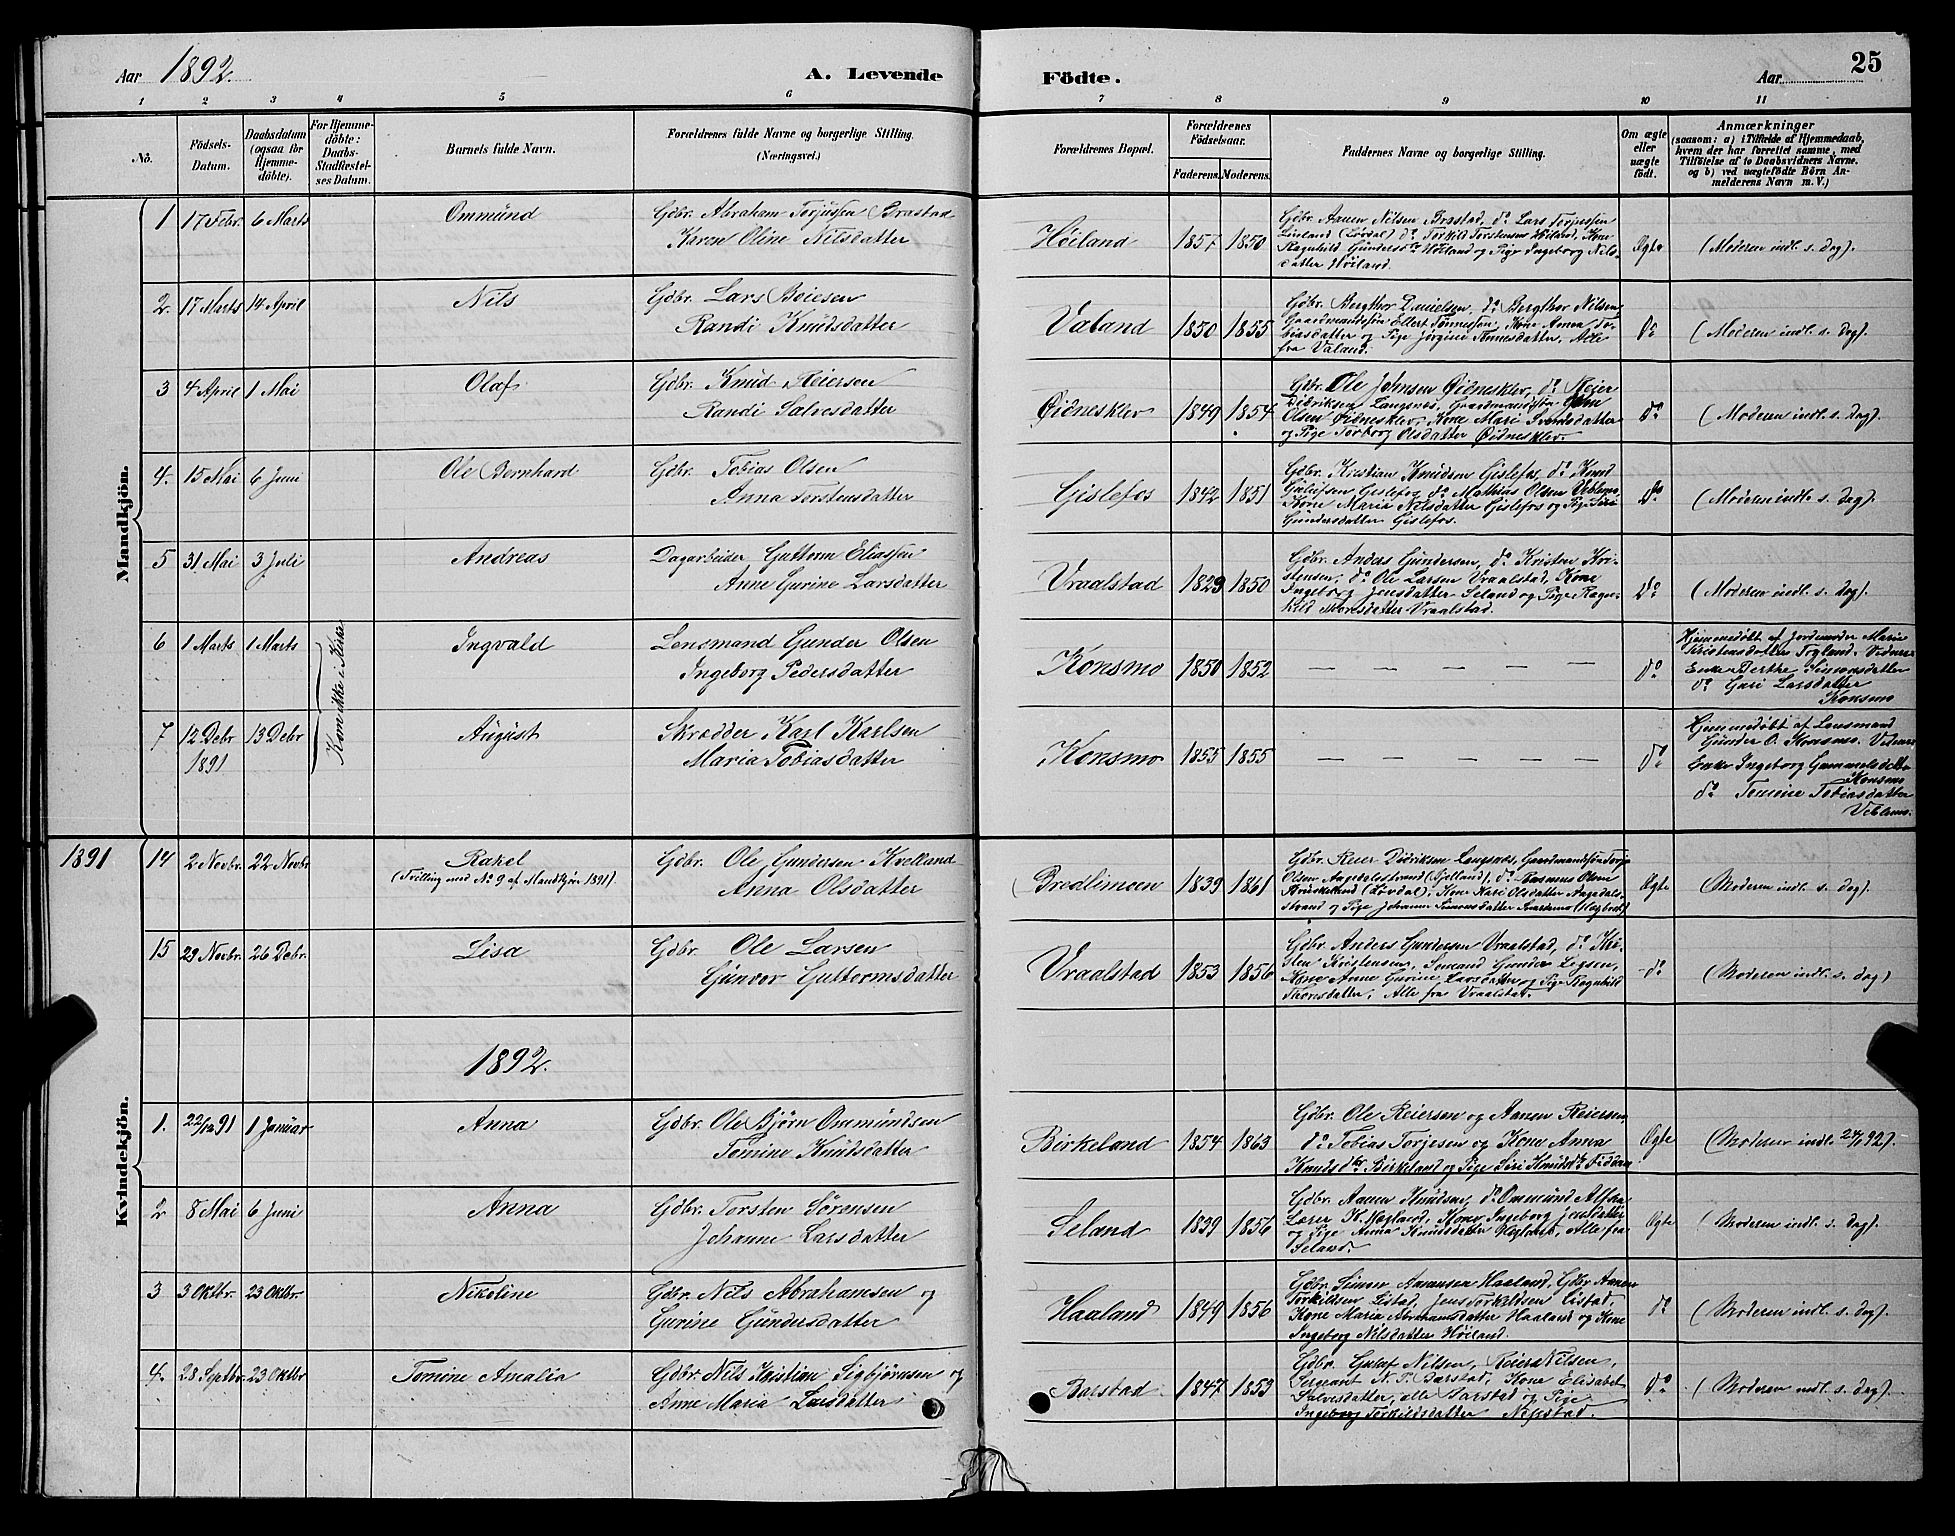 Aar 1892.
A. Levende Födte.
Aar
25
1 2 3 4 5 6 7 8 9 10 11
No.
Födsels-Datum.
Daabsdatum (ogsaa for Hjemmedöbte).
For Hjemmedöbte: Daabs-Stadfæstelses Datum.
Barnets fulde Navn.
Forældrenes fulde Navne og borgerlige Stilling. (Næringsvei.)
Forældrenes Bopæl.
Forældrenes Födselsaar.
Faderens. Moderens.
Faddernes Navne og borgerlige Stilling.
Om ægte eller uægte födt.
Anmærkninger
(saasom: a) i Tilfælde af Hjemmedaab,
hvem der har forrettet samme, med
Tilföielse af to Daabsvidners Navne.
og b) ved uægtefödte Börn An-
melderens Navn m. V.)
Mandkjön.
1 17 Febr. 6 Marts Ommünd Gdbr. Abraham Torjussen Brastad
Karen Oline Nilsdatter
Høiland 1857 1850
Gdbr. Aanen Nilsen Brastad, do Lars Torjussen
Linland (Lørdal) do Torkild Torstensen Høiland, Kone
Ragnhild Gundersdr Høiland og Pige Ingeborg Nils-
datter Høiland.
Ægte (Moderen indl. s. Dag).
2. 17 Marts 14 April Nils Gdbr. Lars Boiesen
Randi Knudsdatter
Valand 1850 1855
Gdbr. Bergthor Danielsen, do Bergthor Nilsen,
Gaardmandssøn Ellert Tønnessen, Kone Anna To-
biasdatter og Pige Jørgine Tønnesdatter, Alle
fra Valand.
do (Moderen indl. s. Dag).
3 4 April 1 Mai Olaf Gdbr. Knud Reiersen
Randi Salvesdatter
Øidnesklev 1849 1854
Gdbr. Ole Johnsen Øidnesklev, do Reier
Didriksen Langsnes, Gaardmandssøn
Olsen Øidnesklev, Kone Mari Svensdatter
og Pige Torborg Olsdatter Øidnesklev.
do (Moderen indl. s. Dag).
4. 15 Mai 6 Juni Ole Bernhard Gdbr. Tobias Olsen
Anna Torstensdatter
Gislefos 1842 1851
Gdbr. Kristian Knudsen Gislefos, do Knud
Gislefos do Mathias Olsen Veblemo,
Kone Maria Nilsdatter Gislefos og Pige Siri
Gundersdatter Gislefos.
do (Moderen indl. s. Dag).
5 31 Mai 3 Juli Andreas Dagarbeider Guttorm Eliassen
Anne Gurine Larsdatter
Vraalstad 1829 1850
Gdbr. Anders Gundersen, do Kristen Kri-
stensen, do Ole Larsen Vraalstad, Kone
Ingeborg Jensdatter Seland og Pige Ragn-
hild Thoresdatter Vraalstad.
do (Moderen indl. s. Dag).
6 1 Marts 1 Marts Kom ikke i Kirke Ingvald Lensmand Gunder Olsen
Ingeborg Pedersdatter
Konsmo 1850 1852
— — — — —
do Hjemmedøbt af Jordemoder Maria
Kristensdatter Fogland. Vidner:
Enke Berthe Simonsdatter
do Guri Larsdatter
Konsmo
7 12 Debr 1891 13 Debr August Skrædder Karl Karlsen
Maria Tobiasdatter
Konsmo 1855 1855
— — — — —
do Hjemmedøbt af Lensmand
Gunder O. Konsmo. Vidner:
Enke Ingeborg Gammelsdatter
Konsmo
do Tomine Tobiasdatter
Veblemo.
Kvindekjön.
1891 14 2 Novbr. 22 Novbr Rakel
(Tvilling med No 9 af Mandkjøn 1891).
Gdbr. Ole Gundersen Kvelland
Anna Olsdatter
Bredlimoen 1839 1861
Gdbr. Reier Didriksen Langsnes, Gaardmandssøn Torje
Olsen Aagedalsstrand (Bjelland), do Rasmus Olsen
(Lørdal), Kone Kari Olsdatter Aagedals-
strand og Pige Johanne Simonsdatter Snartemo (Hægbost)
Ægte (Moderen indl. s. Dag).
15 29 Novbr. 26 Debr. Lisa Gdbr. Ole Larsen
Gunvor Guttormsdatter
Vraalstad 1853 1856
Gdbr. Anders Gundersen Vraalstad, do Kri-
sten Kristensen, Sømand Gunder
Kone Anne Gurine Larsdatter og Pige Ragnhild
Thoresdatter, Alle fra Vraalstad.
do (Moderen indl. s. dag)
1892.
1. 22/12 91 1 Januar Anna Gdbr. Ole Bjørn Ommundsen
Tomine Knudsdatter
Birkeland 1854 1863
Gdbr. Ole Reiersen og Aanen Reiersen,
do Tobias Torjesen og Kone Anna
Knudsdtr Birkeland og Pige Siri Knudsdtr Fidjan
Ægte (Moderen indl. 24/1 92).
2 8 Mai 6 Juni Anna Gdbr. Torsten Sørensen
Johanne Larsdatter
Seland 1839 1856
Gdbr. Aanen Knudsen, do Ommund
Lærer K. Høgland, Kone Ingeborg Jensdatter
og Pige Anna Knudsdatter Høgland, Alle fra
Seland.
Ægte (Moderen indl. s. Dag).
3 3 Oktbr. 23 Oktbr. Nikoline Gdbr. Nils Abrahamsen og
Gurine Gundersdatter
Haaland 1849 1856
Gdbr. Simon Aanensen Haaland, Gdbr Aanen
Torkildsen Eistad, Jens Torkildsen Eistad,
Kone Maria Abrahamsdatter Haaland og Kone
Ingeborg Nilsdatter Høiland.
do (Moderen indl. s. Dag).
4. 28 Septbr. 23 Oktbr Tomine Amalia Gdbr. Nils Kristian Sigbjørnsen og
Anne Maria Larsdatter
Barstad 1847 1853
Gdbr. Gulaf Nilsen, Reiers Nilsen,
Sergeant N. T. Barstad, Kone Elisabet
Salvesdatter, alle Barstad og Pige
Ingeborg Torkildsdatter
do (Moderen indl. s. dag).